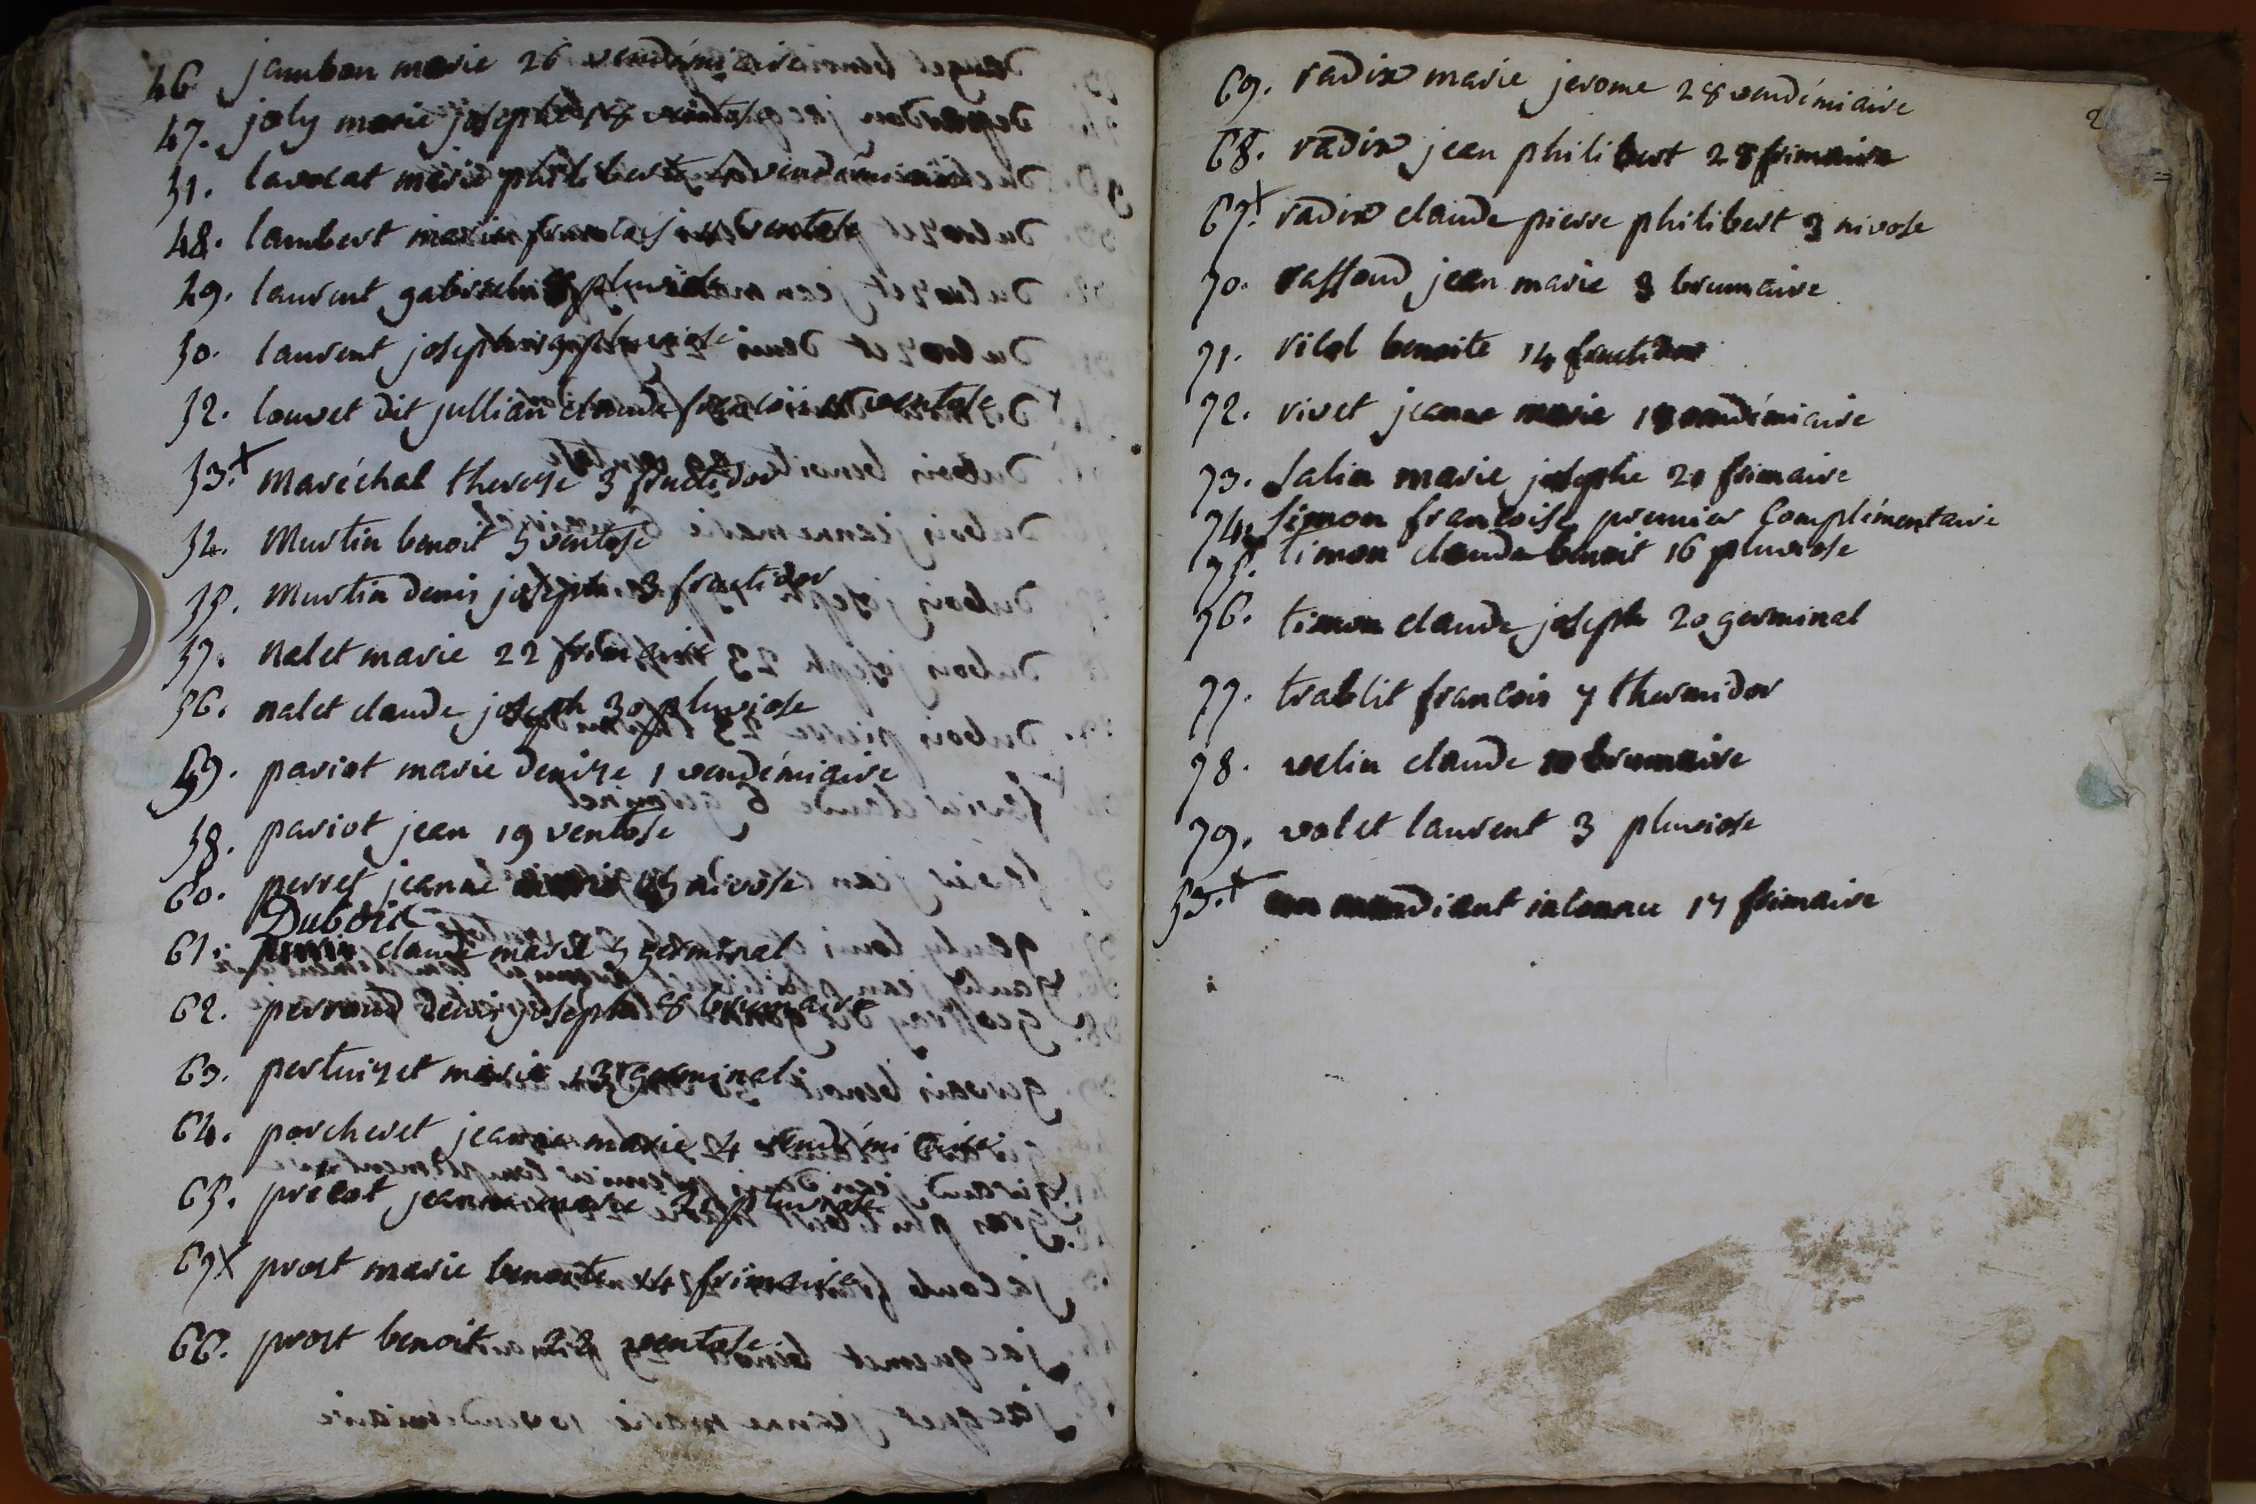 46. jambon marie 26 vendémiaire
47. joly marie josephe 18 ventose
51. lavocat marie philiberte vendémiaire
48. lambert marie francois ventose
49. laurent gabriel pluviose
50. laurent joseph 19 pluviose
52. louvet dit jullian claude francois ventose
53.x maréchal therese 3 fructidor
54. Murtin benoit 5 ventose
55. Murtin denis joseph 3 fructidor
57. nalet marie 22 frimaire
56. nalet claude joseph 30 pluviose
59. pariot marie denize 1 vendémiaire
58. pariot jean 19 ventose
60. perret jeanne nivose
Dubois
61. claude marie 5 germinal
62. perraud denis joseph 8 brumaire
63. pertuizet marie 13 germinal
64. porcheret jeanne marie 24 vendémiaire
65. précat jeanne marie pluviose
67x prost marie benoite 14 frimaire
66. prost benoit 22 ventose
2
69. radix marie jerome 28 vendémiaire
68. radix jean philibert 28 frimaire
67.x radix claude pierre philibert 3 nivose
70. raffoud jean marie 8 brumaire
71. benoite 14 fructidor
72. rivet jeanne marie 18 vendémiaire
73. salin marie josephe 20 frimaire
74. simon francoise premier Complémentaire
75. timon claude benoit 16 pluviose
76. timon claude joseph 20 germinal
77. trablit francois 7 thermidor
78. velin claude 10 brumaire
79. volet laurent 3 pluviose
53.x un mendiant inconnu 17 frimaire